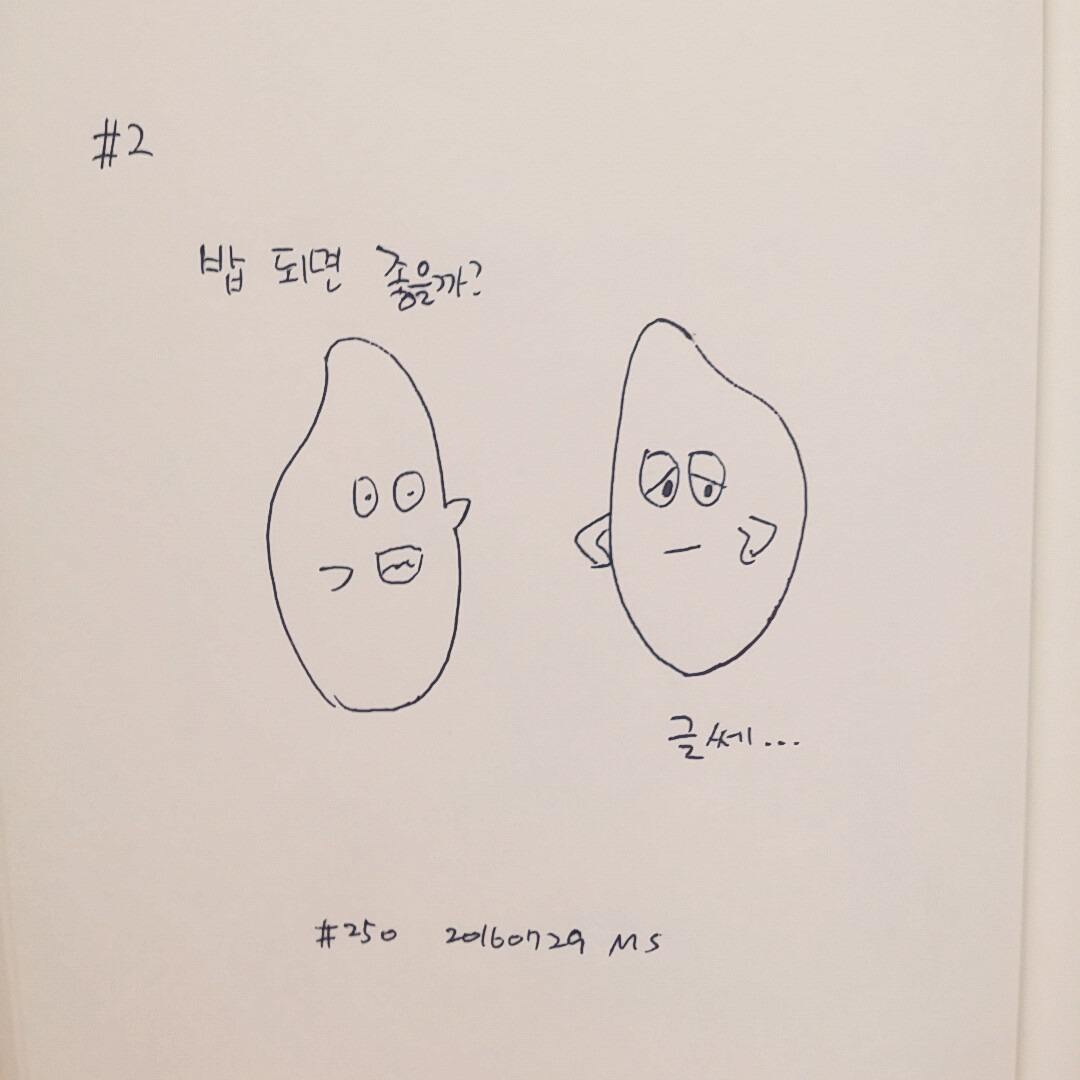 #2
밥 되면 좋을까?
글쎄...
#250 20160729 MS